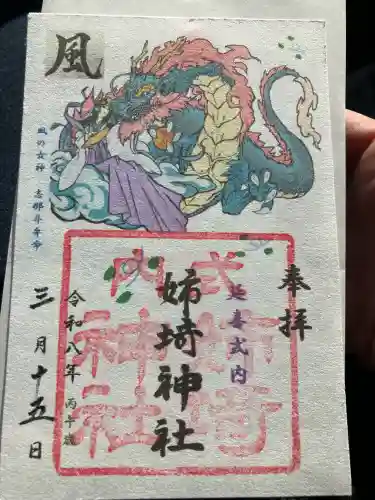 風
風の女神 志那斗弁命
奉拝
延喜式内
姉埼神社
式内
姉埼
神社
令和八年 丙午歳
三月十五日